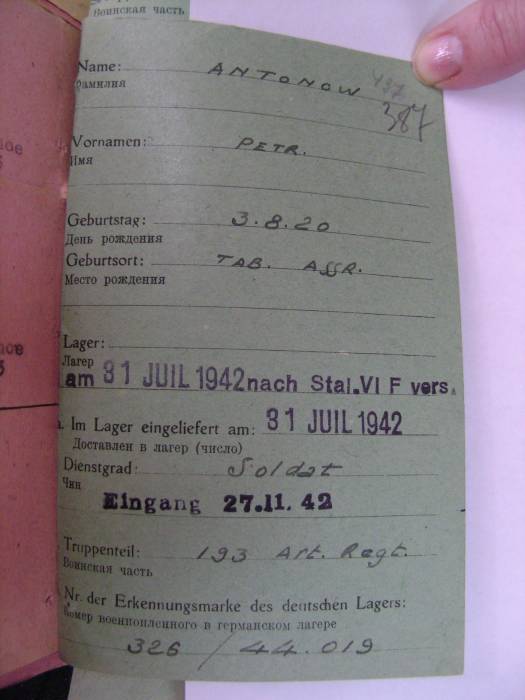 Воинская часть
Name: ANTONOW 437
Фамилия 387
Vornamen: PETR.
Имя
Geburtstag: 3.8.20
День рождения
Geburtsort: TAB. ASSR.
Место рождения
Lager:
Лагерь
am 31 JUIL 1942 nach Stal.VI F vers.
Im Lager eingeliefert am: 31 JUIL 1942
Доставлен в лагер (число)
Dienstgrad: Soldat
Чин
Eingang 27.11.42
Truppenteil: 193 Art. Regt.
Воинская часть
Nr. der Erkennungsmarke des deutschen Lagers:
Номер военнопленного в германском лагере
326 / 44.019